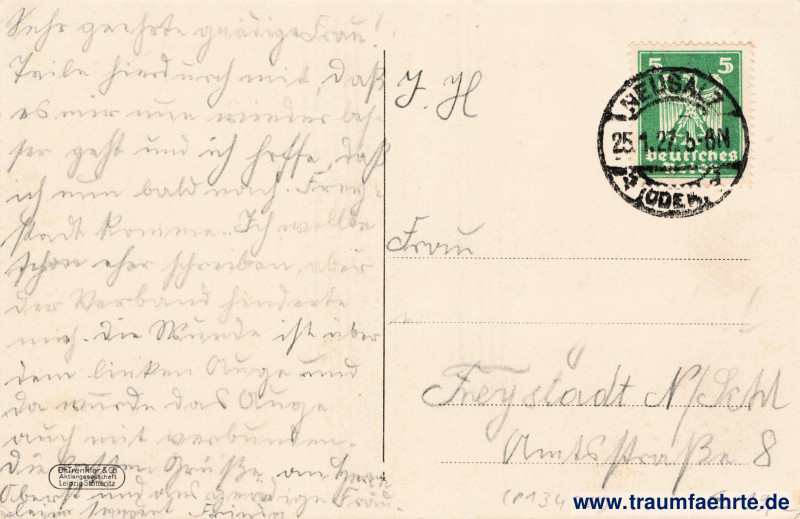 Sehr geehrte gnädige Frau!
Teile hierdurch mit, daß
es mir nun wieder bes-
ser geht und ich hoffe, daß
ich nun bald nach Frey-
stadt komme. Ich wollte
schon eher schreiben, aber
der Verband hinderte
mich. Die Wunde ist über
dem linken Auge und
da wurde das Auge
auch mit verbunden.
Die besten Grüße an Herrn
Oberst und
Dr. Trenkler & Co
Aktiengesellschaft
Leipzig-Stötteritz
J. H
5 5
Deutsches
Reich
NEUSALZ
25.1.27. 5-6N
(ODER)
Frau
Freystadt N/Schl
Amtsstraße 8
www.traumfaehrte.de